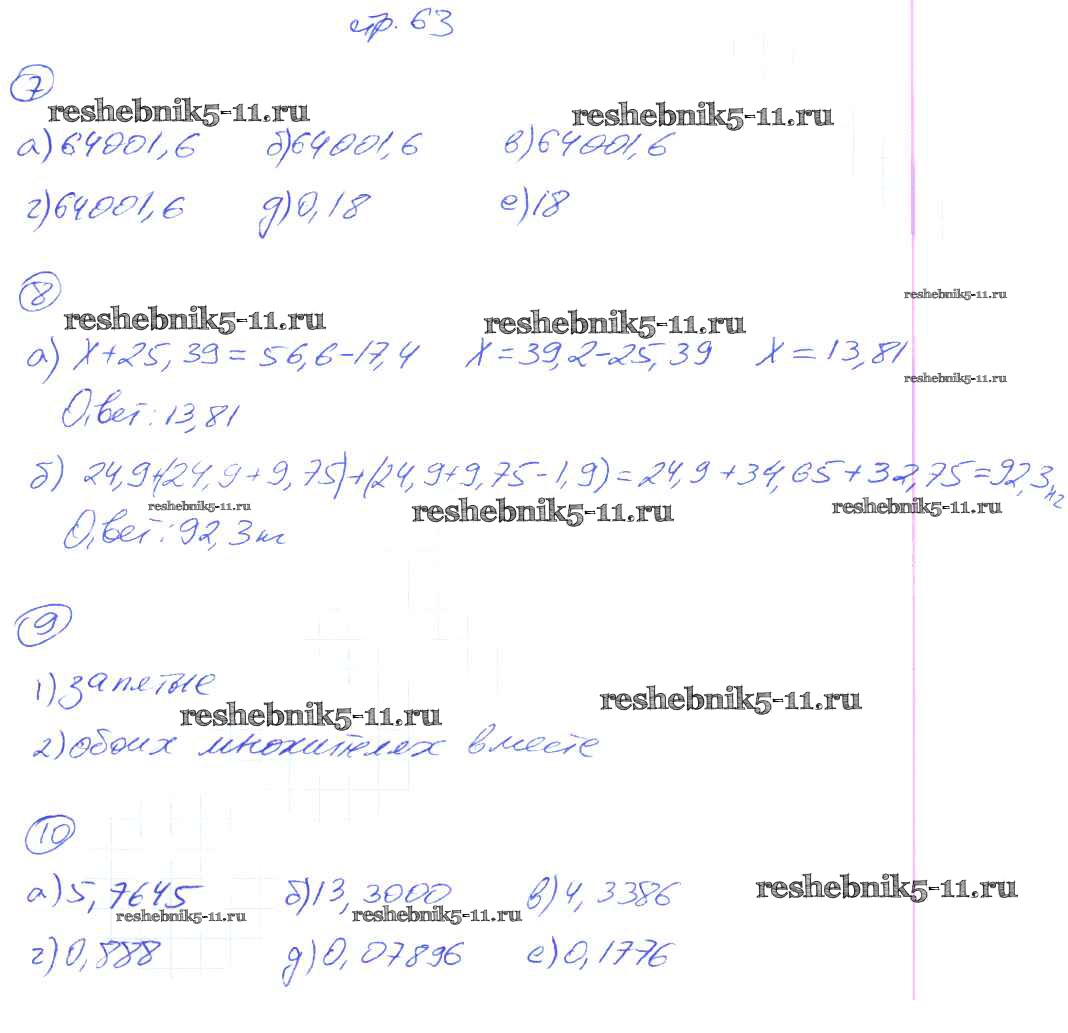 стр. 63
7
reshebnik5-11.ru reshebnik5-11.ru
а) 64001,6 б) 64001,6 в) 64001,6
г) 64001,6 д) 0,18 е) 18
8
reshebnik5-11.ru
reshebnik5-11.ru reshebnik5-11.ru
а) X + 25,39 = 56,6 - 17,4 X = 39,2 - 25,39 X = 13,81
reshebnik5-11.ru
Ответ: 13,81
б) 24,9+(24,9+9,75)+(24,9+9,75-1,9) = 24,9+34,65+32,75=92,3 кг
reshebnik5-11.ru reshebnik5-11.ru reshebnik5-11.ru
Ответ: 92,3 кг
9
1) запятые
reshebnik5-11.ru reshebnik5-11.ru
2) обоих множителях вместе
10
а) 5,7645 б) 13,3000 в) 4,3386
reshebnik5-11.ru reshebnik5-11.ru reshebnik5-11.ru
г) 0,888 д) 0,07896 е) 0,1776